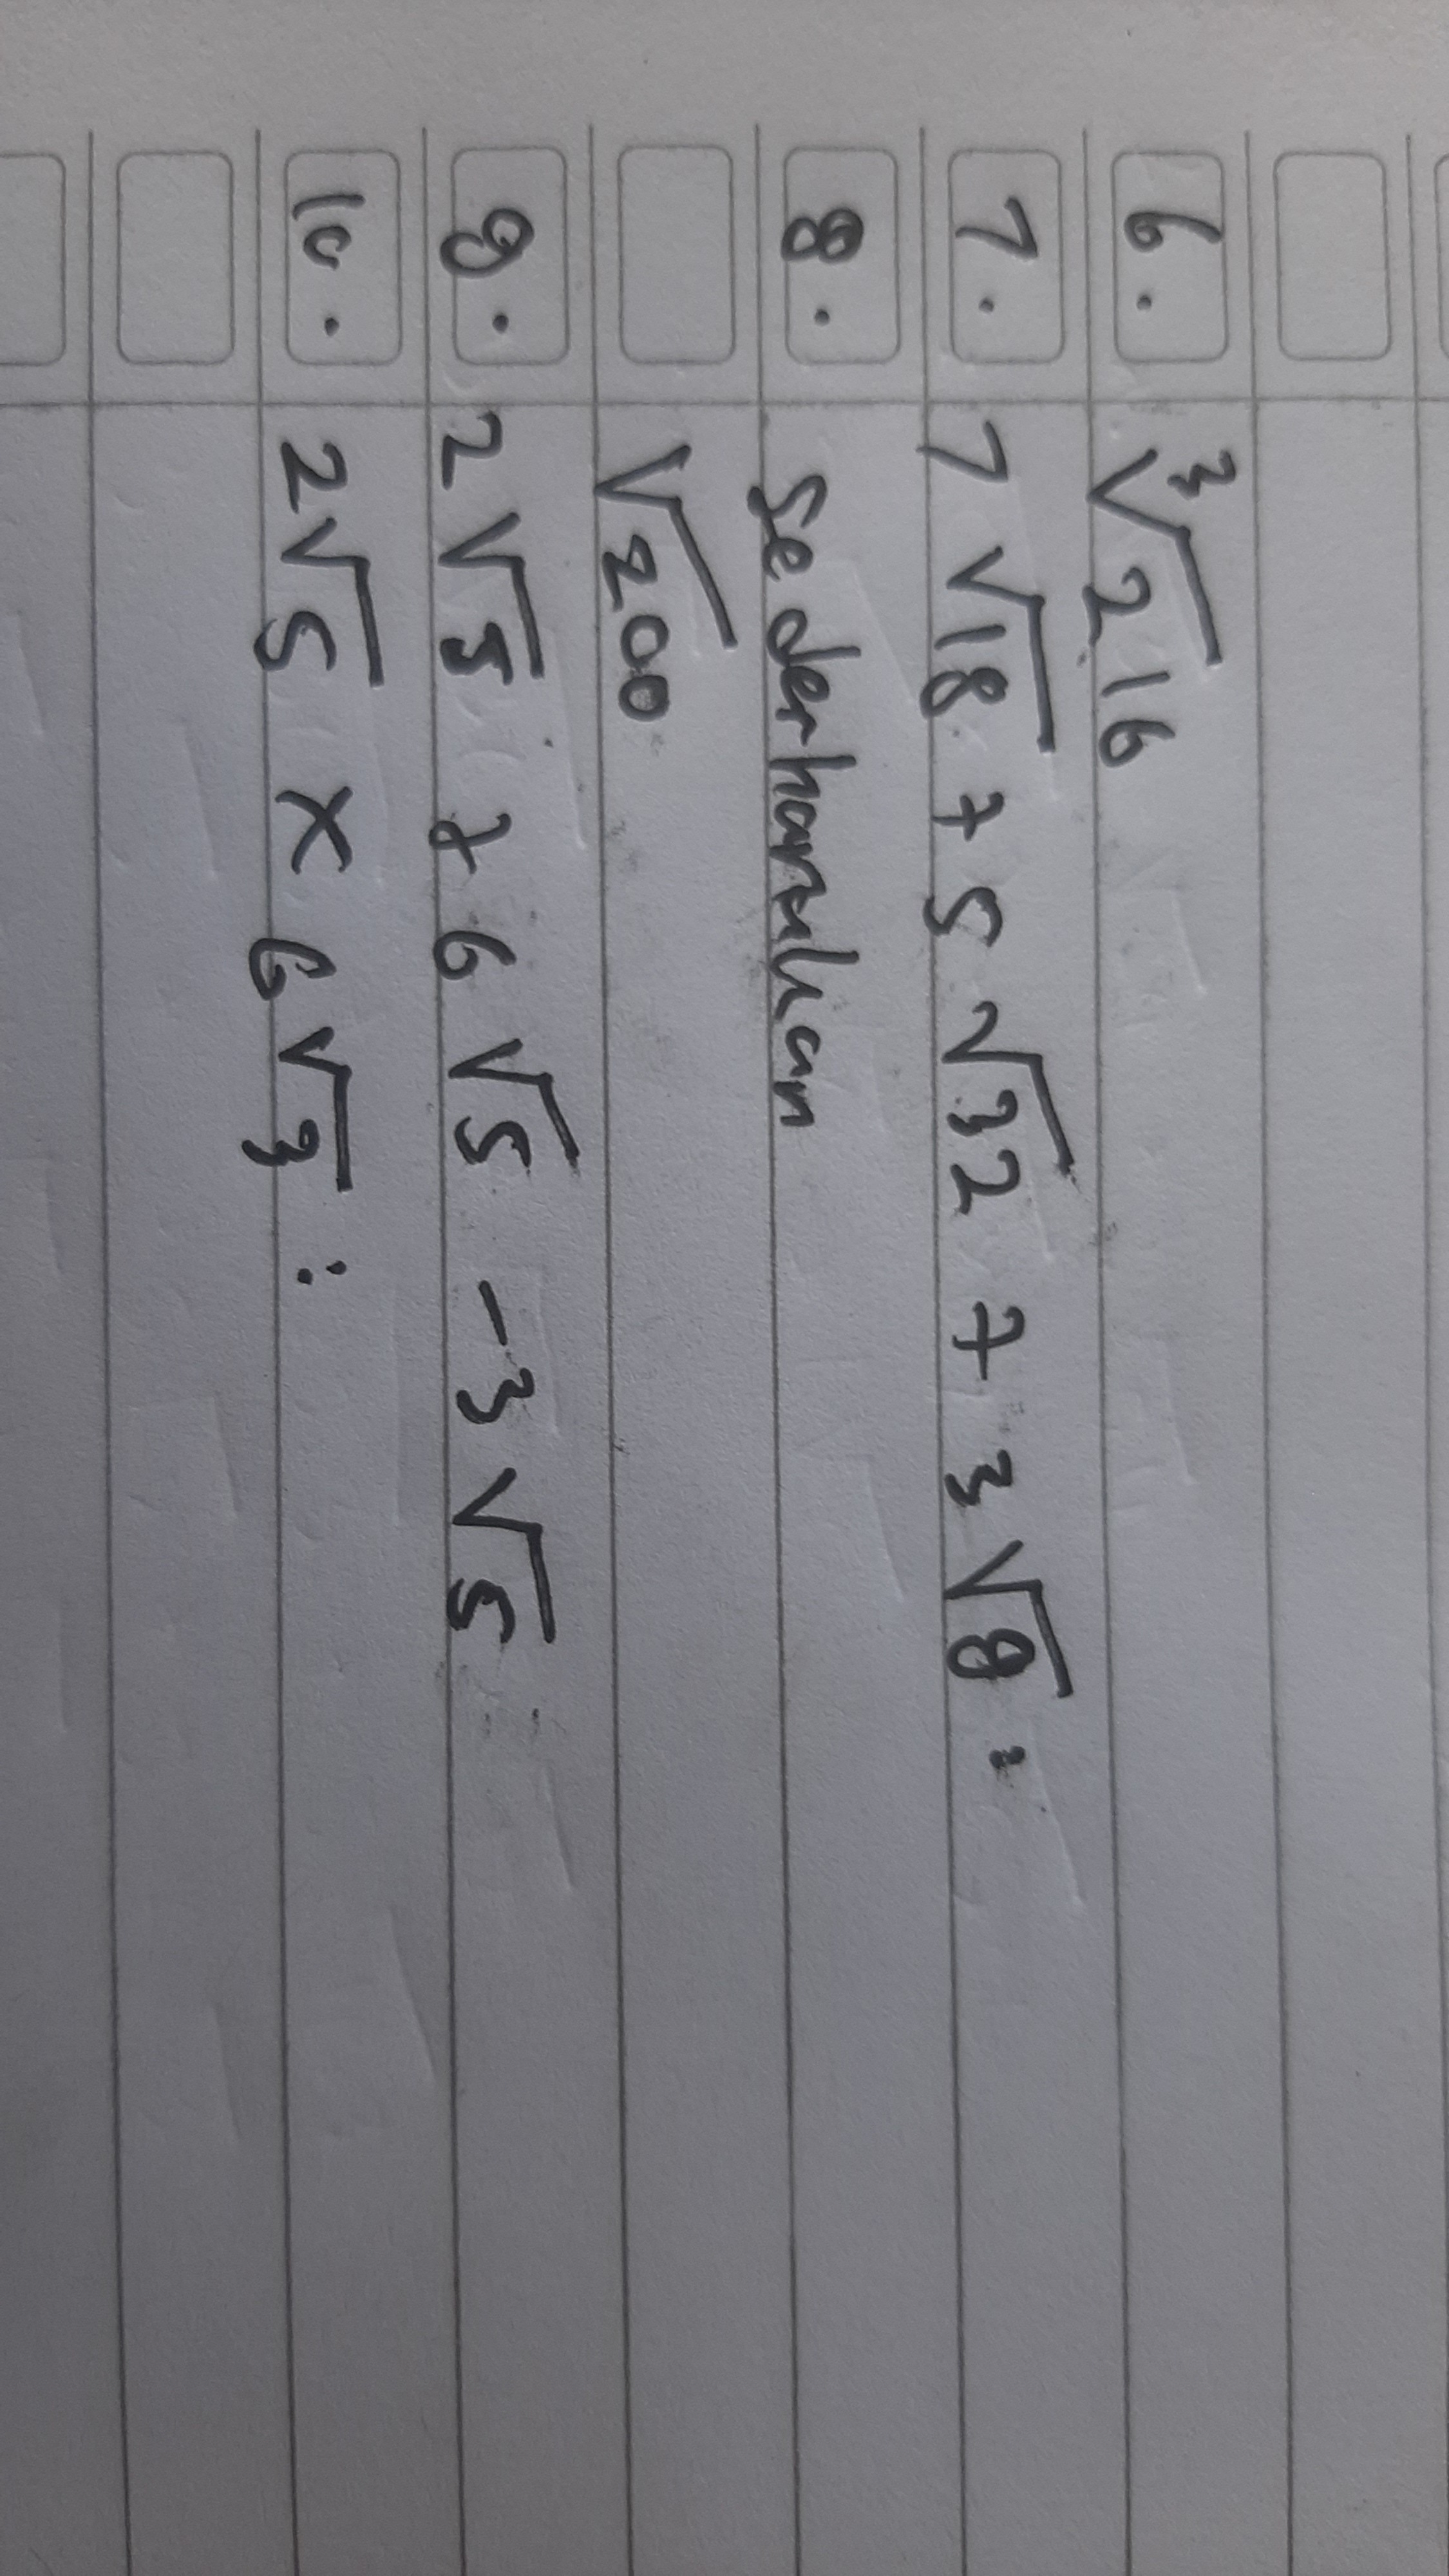 6. ³√216
7. 7√18 + 5√32 + 3√8 :
8. Sederhanakan
√200
9. 2√5 + 6√5 - 3√5
10. 2√5 × 6√3 :